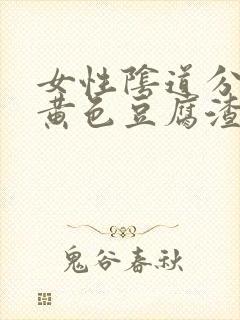 女性陰道分
黄色豆腐渣
鬼谷春秋